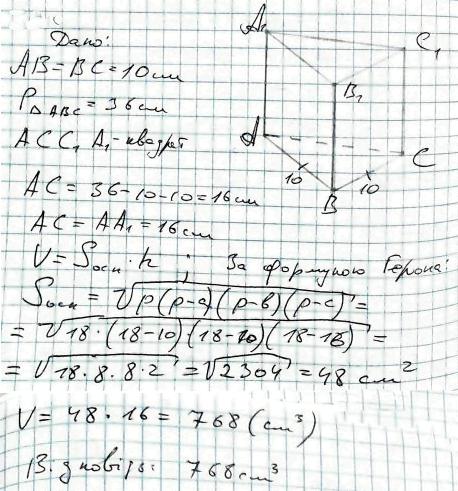 Дано:
AB = BC = 10 см
P△ABC = 36 см
ACC₁A₁ - квадрат
A₁
C₁
B₁
A
C
10
10
B
AC = 36-10-10 = 16 см
AC = AA₁ = 16 см
V = Sосн · h ; За формулою Герона:
Sосн = √p(p-a)(p-в)(p-c) =
= √18·(18-10)(18-10)(18-16) =
= √18·8·8·2 = √2304 = 48 см²
V = 48 · 16 = 768 (см³)
Відповідь: 768 см³